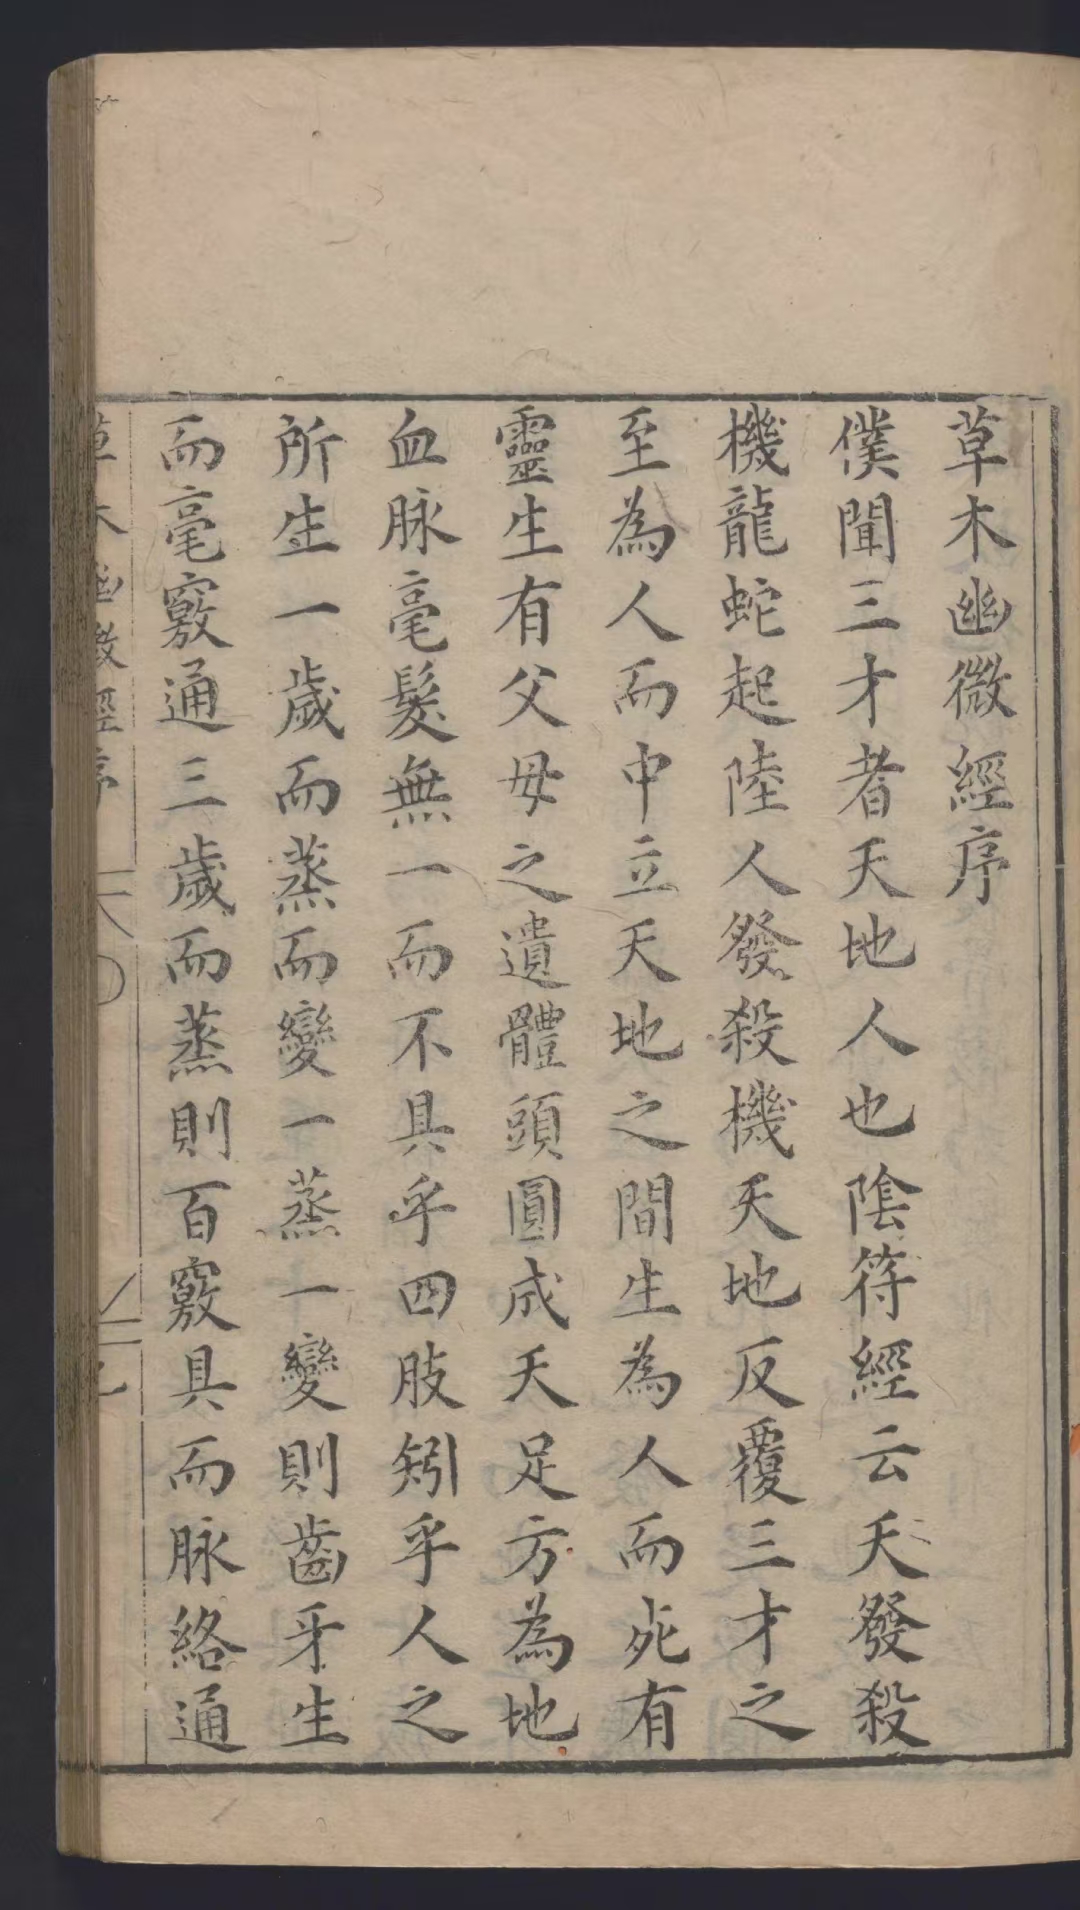 草木幽微經序
僕聞三才者天地人也陰符經云天發殺
機龍蛇起陸人發殺機天地反覆三才之
至為人而中立天地之間生為人而死有
靈生有父母之遺體頭圓成天足方為地
血脉毫髮無一而不具乎四肢矧乎人之
所生一歲而蒸而變一蒸一變則齒牙生
而毫竅通三歲而蒸則百竅具而脉絡通
草木幽微經序